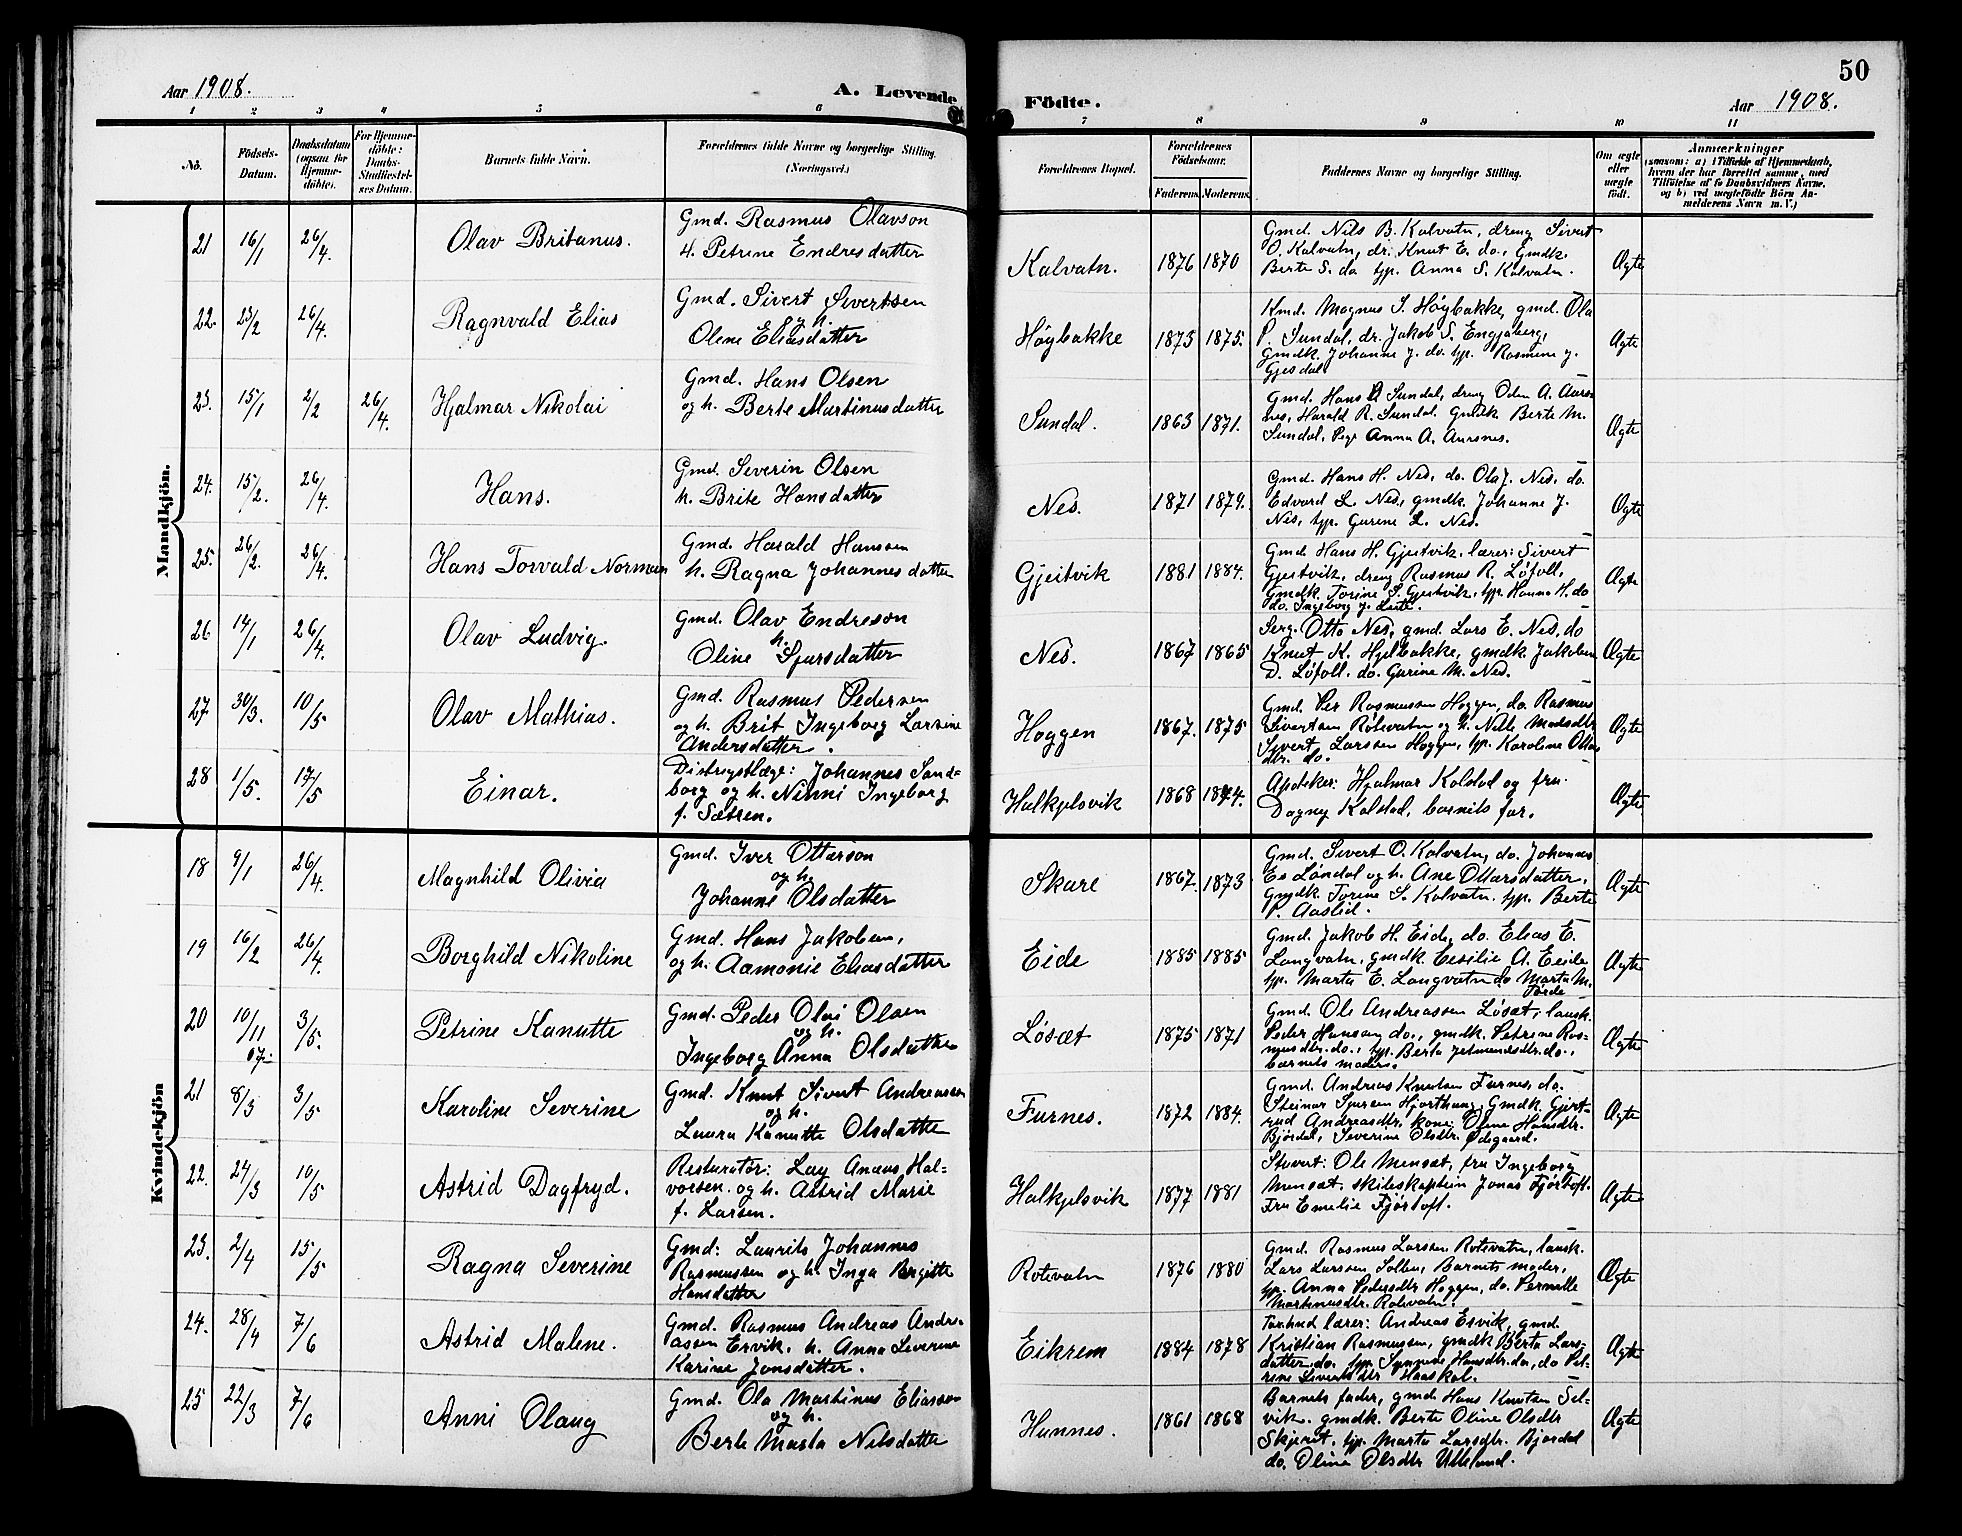 50
Aar 1908.
A. Levende Födte.
Aar 1908.
1 2 3 4 5 6 7 8 9 10 11
No.
Födsels-Datum.
Daabsdatum (ogsaa for Hjemme-döbte).
For Hjemme-döbte: Daabs-Stadfæstel-ses Datum.
Barnets fulde Navn.
Forældrenes fulde Navne og borgerlige Stilling. (Næringsvei.)
Forældrenes Bopæl.
Forældrenes Födselsaar.
Faderens. Moderens.
Faddernes Navne og borgerlige Stilling.
Om ægte eller uægte födt.
Anmærkninger
(saasom: a) i Tilfælde af Hjemmedaab, hvem der har forrettet samme, med Tilföielse af to Daabsvidners Navne, og b) ved uægtefödte Börn An-melderens Navn m. V.)
Mandkjön.
21 16/1 26/4. Olav Britanus. Gmd. Rasmus Olavson
h. Petrine Endresdatter
Kalvatn. 1876 1870 Gmd. Nils B. Kalvatn, dreng Sivert
O. Kalvatn, dr. Knut E. do., Gmdk.
Berte S. do typ. Anna S. Kalvatn. Ægte
22. 23/2 26/4. Ragnvald Elias Gmd. Sivert Sivertsen
og h.
Olene Eliasdatter
Høybakke 1873 1875. Kmd. Magnus S. Høybakke, gmd. Ola
P. Sundal, dr. Jakob S. Engjaberg,
Gmdk. Johanne J. do. typ. Rasmine J.
Gjesdal Ægte
23. 15/1 2/2 26/4. Hjalmar Nikolai Gmd. Hans Olsen
og h. Berte Martinusdatter
Sundal. 1863 1871. Gmd. Hans A Sundal, dreng Oden A. Aurs
nes, Harald R. Sundal. Gmdk Berte M.
Sundal, Pige Anna A. Aursnes. Ægte
24. 15/2. 26/4. Hans. Gmd. Severin Olsen
h. Brite Hansdatter
Nes. 1871 1879. Gmd. Hans H. Nes, do. Ola J. Nes, do.
Edvard L. Nes, gmdk. Johanne J.
Nes, typ. Gurine L. Nes. Ægte
25. 26/2. 26/4. Hans Torvald Norman Gmd. Harald Hanssen
h. Ragna Johannesdatter
Gjeitvik 1881 1884. Gmd. Hans H. Gjeitvik, lærer: Sivert
Gjeitvik, dreng Rasmus R. Løfoll,
Gmdk. Torine S. Gjeitvik, typ. Hanna H. do
do. Ingeborg J. Ægte
26 14/1 26/4. Olav Ludvig Gmd. Olav Endreson
h.
Oline Sjursdatter
Nes. 1867 1865 Serg. Otto Nes, gmd. Lars E. Nes, do
Knut K. Hjelbakke, gmdk. Jakobine
D. Løfoll. do. Gurine M. Nes. Ægte
27 30/3. 10/5 Olav Mathias. Gmd. Rasmus Pedersen
og h. Brit Ingeborg Larsine
Andersdatter.
Hoggen 1867. 1875 Gmd. Per Rasmussen Hoggen, do. Rasmus
Sivertsen Rotevatn og h. Nille Madsdtr
Sivert Larssen Hoggen, typ. Karoline Ottar
dtr. do. Ægte
28 1/5. 17/5 Einar. Distrigtslæge: Johannes Sand=
borg og h. Ninni Ingeborg
f. Sætren.
Halkjelsvik 1868 1874. Apoteker: Hjalmar Kolstad og fru
Dagny Kolstad, barnets far. Ægte
Kvindekjön
18 9/1 26/4. Magnhild Olivia Gmd. Iver Ottarson
og h.
Johanne Olsdatter
Skare 1867. 1873 Gmd. Sivert O. Kalvatn, do. Johannes
Es Løndal og h. Ane Ottarsdatter,
Gmdk Torine S. Kalvatn. typ. Berte
P. Aaslid. Ægte
19 16/2 26/4. Borghild Nikoline Gmd. Hans Jakobsen,
og h. Aamonie Eliasdatter
Eide 1885 1885 Gmd. Jakob H. Eide, do. Elias E.
Langvatn, gmdk Cesilie A. Eide
typ. Marta E. Langvatn do Marta M.
Førde Ægte
20 10/11 07. 3/5. Petrine Kanutte Gmd. Peder Olai Olsen
og h.
Ingeborg Anna Olsdatter
Løsæt 1875 1871 Gmd. Ole Andreassen Løsæt, lausk.
Peder Hansen do., gmdk. Petrine Ras-
musdtr. do., typ. Berta Jetmundsdtr. do.,
barnets moder. Ægte
21 8/3 3/5 Karoline Severine Gmd. Knut Sivert Andreassen
og h.
Laura Kanutte Olsdatter
Furnes. 1872 1884. Gmd. Andreas Knutsen Furnes, do.
Steinar Sjursen Hjorthaug, Gmdk Gjert-
rud Andreasdtr, kone: Oline Hansdtr.
Bjørdal, Severine Olsdtr. Ødegaard. Ægte
22. 24/3 10/5 Astrid Dagfryd. Resturatør: Lay Anæus Hal-
vorsen. og h. Astrid Marie
f. Larsen.
Halkjelsvik 1877 1881 Stuert: Ole Mensæt, fru Ingeborg
Mensæt. skibskaptein Jonas Fjørtoft.
Fru Emelie Fjørtoft. Ægte
23. 2/4 15/5 Ragna Severine Gmd: Laurits Johannes
Rasmussen og h. Inga Birgitte
Hansdatter
Rotevatn 1876 1880 Gmd. Rasmus Larssen Rotevatn, lausk.
Lars Larssen Solten, Barnets moder,
typ. Anna Pedersdtr Hoggen, do. Pernille
Martinusdtr. Rotevatn. Ægte
24. 28/4 7/6 Astrid Malene. Gmd. Rasmus Andreas Andre-
assen Ervik. h. Anna Severine
Karine Jonsdatter.
Eikrem 1884 1878 lærer: Andreas Ervik, gmd.
Kristian Rasmussen, gmdk Berta Lars-
datter do. typ. Synneve Hansdtr. do, do Pet-
rine Sivertsdtr Haaskol. Ægte
25 22/3 7/6 Anni Olaug Gmd. Ola Martinus Eliasson
og h.
Berte Marta Nilsdatter
Hunnes. 1861 1868 Barnets fader, gmd Hans Knutsen Sel-
vik. gmdk. Berte Oline Olsdtr
Skjeret, typ. Marta Larsdtr. Bjørdal
do. Oline Olsdtr Ulleland. Ægte